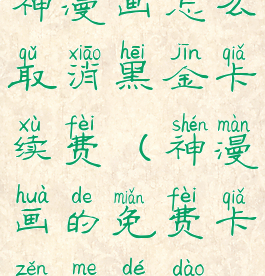 神漫画怎么
qǔ xiāo hēi jīn qiǎ
取消黑金卡
xù fèi shén màn
续费（神漫
huà de miǎn fèi qiǎ
画的免费卡
zěn me dé dào